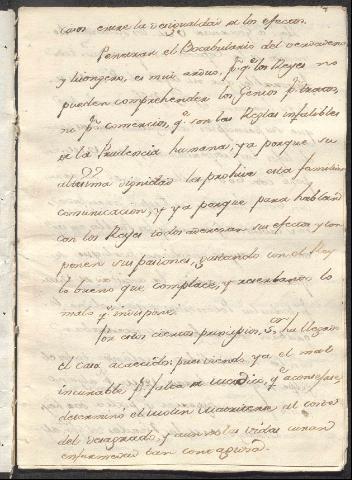 cons entre la desigualdad de los efectos.
Penetrar el Bocabulario del verdadero
y lisongero, es mui arduo, p.r q.e los Reyes no
pueden comprehender los Genios p.r tratos,
ni p.r comercios, q.e son las Reglas infalibles
de la Prudencia humana; ya porque su
altissima dignidad les prohive esta familiar
comunicacion, y ya porque para hablar
con los Reyes todos aderezan sus efectos, y com
ponen sus pasiones, gustando con el Rey
lo bueno que complace, y reserbando lo
malo q.e indispone.
Por estos ciertos principios, S.or ha llegado
el caso acaecido: pues viendo ya el mal
incurable p.r falta de medio, q.e aconsejase,
determinó el motin
del desagrado, y aun
enfermedad tan contagiosa.